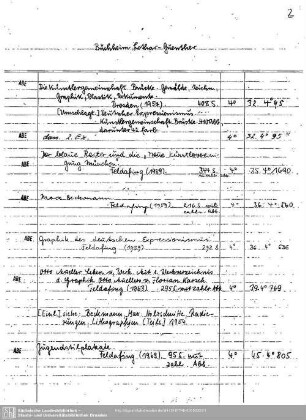 2
Buchheim Lothar-Guenther
ABE Die Künstlergemeinschaft Brücke. Gemälde, Zeichn.
Graphik, Plastik, Dokumente.
(1956) 408 S. 4° 32. 4° 95
[Umschlagt.] Deutscher Expressionismus
Künstlergemeinschaft Brücke
ABE dass. 2. Ex. 4° 32. 4° 95
ABE Der blaue Reiter und die "Neue Künstlerverei-
nigung München"
Feldafing (1959). 344 S. 4° 35. 4° 1690
ABE Max Beckmann
Feldafing (1959). 216 S. mit
zahlr. Abb. 4° 36. 4° 260
ABE Graphik des deutschen Expressionismus
Feldafing (1959) 292 S. 4° 36. 4°
ABE Otto Mueller Leben u. Werk. Mit e. Werkverzeichnis
d. Graphik Otto Muellers v. Florian Karsch
Feldafing (1963). 295 S. mit zahlr. Abb. 4° 39. 4° 769
[Einl.] siehe: Beckmann, Max Holzschnitte Radie-
rungen Lithographien (Teils) 1954
ABE Jugendstilplakate
Feldafing (1969). 95 S. mit
zahlr. Abb. 4° 45. 4° 805
Sächsische Landesbibliothek -
Staats- und Universitätsbibliothek Dresden